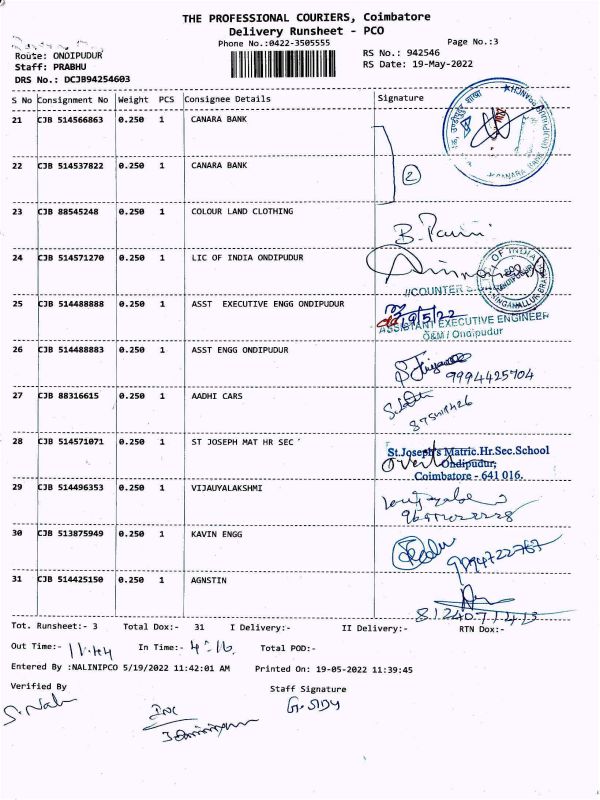 THE PROFESSIONAL COURIERS, Coimbatore
Delivery Runsheet - PCO
Phone No.:0422-3505555
Page No.:3
Route: ONDIPUDUR
RS No.: 942546
Staff: PRABHU
RS Date: 19-May-2022
DRS No.: DCJB94254603
S No Consignment No Weight PCS Consignee Details Signature
21 CJB 514566863 0.250 1 CANARA BANK
22 CJB 514537822 0.250 1 CANARA BANK
2
23 CJB 88545248 0.250 1 COLOUR LAND CLOTHING
24 CJB 514571270 0.250 1 LIC OF INDIA ONDIPUDUR
25 CJB 514488888 0.250 1 ASST EXECUTIVE ENGG ONDIPUDUR
19/5/22
ASSISTANT EXECUTIVE ENGINEER
O&M / Ondipudur
26 CJB 514488883 0.250 1 ASST ENGG ONDIPUDUR
9994425704
27 CJB 88316615 0.250 1 AADHI CARS
28 CJB 514571071 0.250 1 ST JOSEPH MAT HR SEC
St.Joseph's Matric.Hr.Sec.School
Ondipudur,
Coimbatore - 641 016.
29 CJB 514496353 0.250 1 VIJAUYALAKSHMI
30 CJB 513875949 0.250 1 KAVIN ENGG
31 CJB 514425150 0.250 1 AGNSTIN
Tot. Runsheet:- 3 Total Dox:- 31 I Delivery:- II Delivery:- RTN Dox:-
Out Time:- 11.44 In Time:- 4:16 Total POD:-
Entered By :NALINIPCO 5/19/2022 11:42:01 AM Printed On: 19-05-2022 11:39:45
Verified By Staff Signature